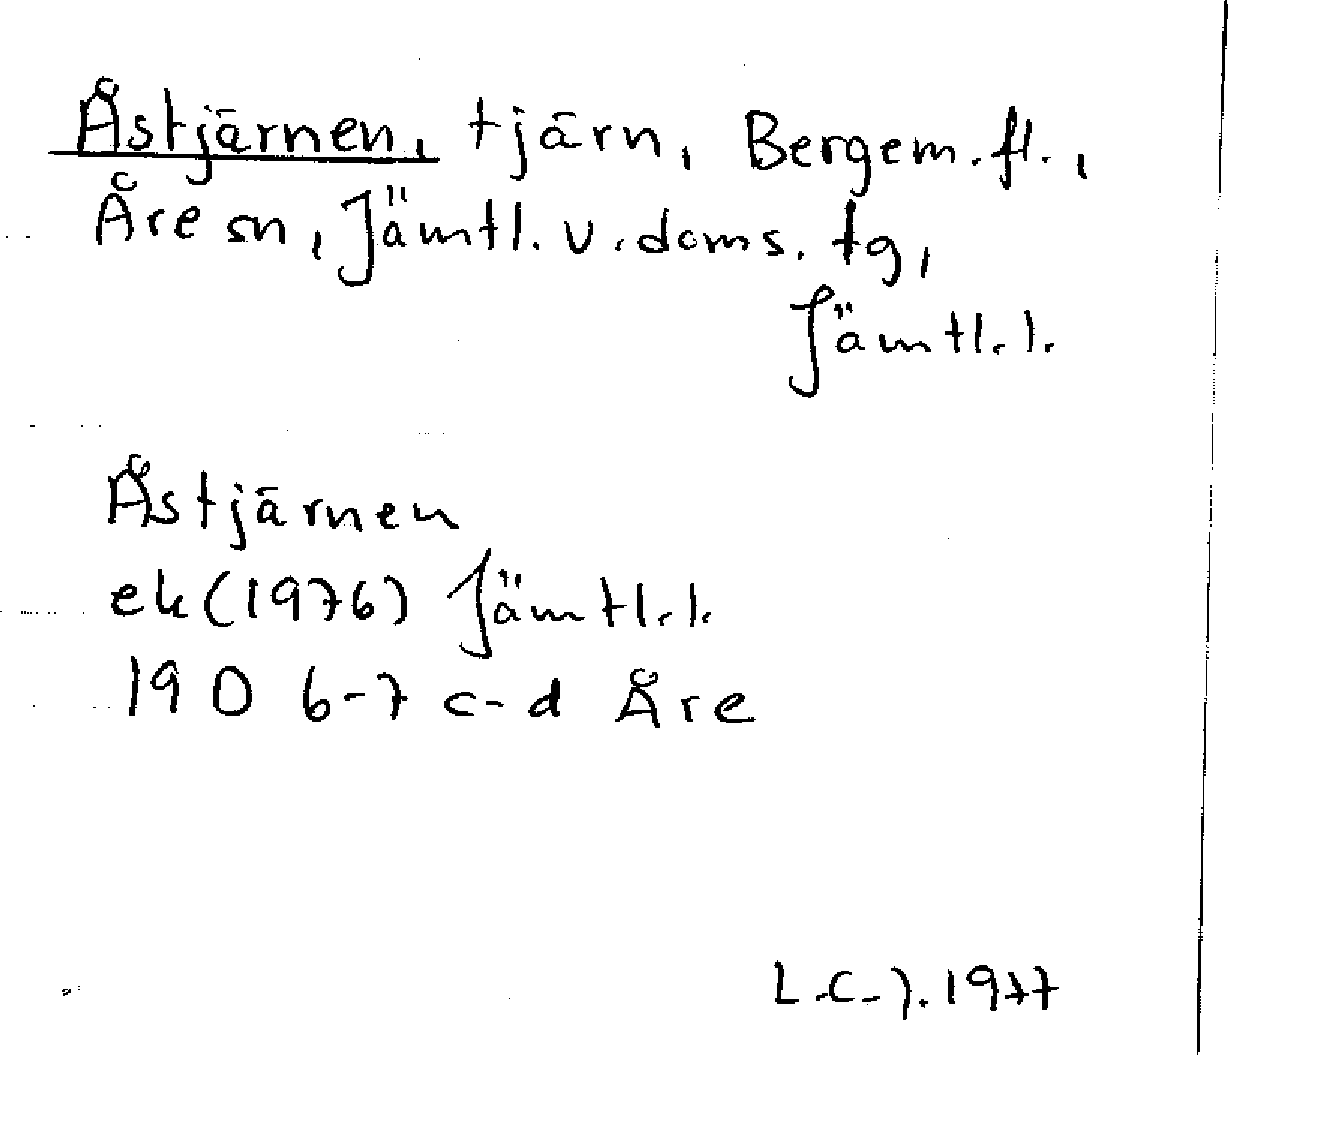 Åstjärnen, tjärn, Bergem. fl.,
Åre sn, Jämtl. v. doms. tg,
Jämtl. l.
Åstjärnen
ek (1976) Jämtl. l.
19 D 6-7 c-d Åre
L.C-J. 1977